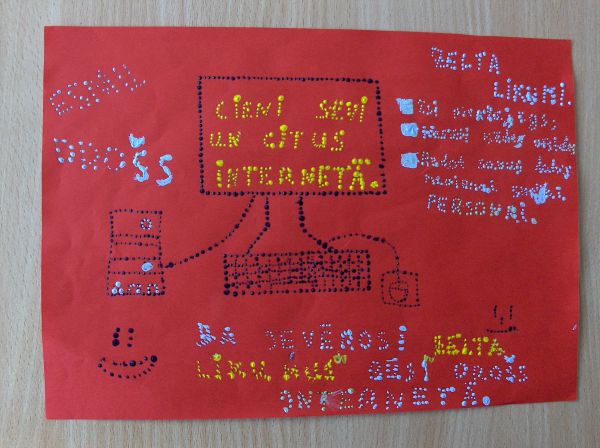 ESMU
DROŠS
CIENI SEVI
UN CITUS
INTERNETĀ.
ZELTA
LIKUMI.
Esi
Nedod savus
PERSONAI.
JA IEVĒROSI ZELTA
LIKUMUS BŪSI DROŠS
INTERNETĀ.